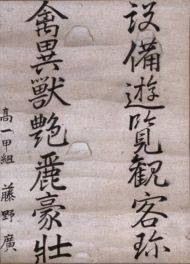 設備遊覧観客珎
禽異獣艶麗豪壮
高一甲組 藤野廣